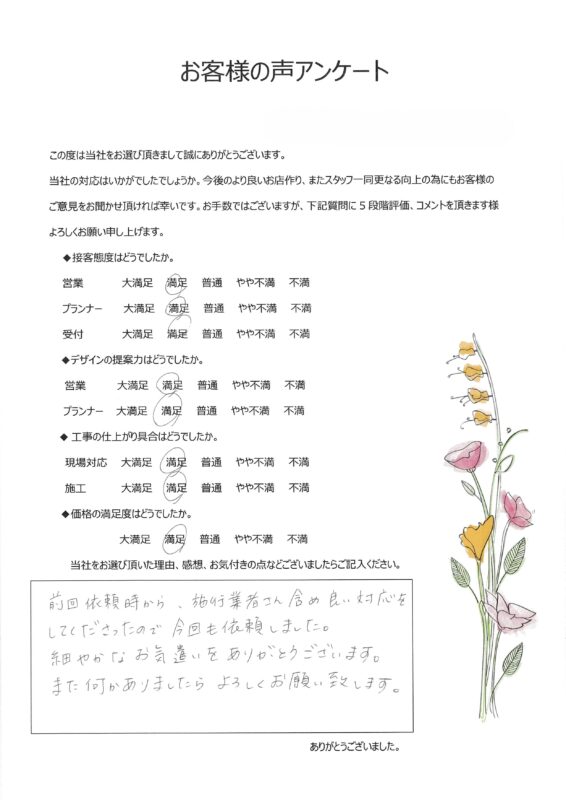 お客様の声アンケート
この度は当社をお選び頂きまして誠にありがとうございます。
当社の対応はいかがでしたでしょうか。今後のより良いお店作り、またスタッフ一同更なる向上の為にもお客様の
ご意見をお聞かせ頂ければ幸いです。お手数ではございますが、下記質問に５段階評価、コメントを頂きます様
よろしくお願い申し上げます。
◆接客態度はどうでしたか。
営業 大満足 満足 普通 やや不満 不満
プランナー 大満足 満足 普通 やや不満 不満
受付 大満足 満足 普通 やや不満 不満
◆デザインの提案力はどうでしたか。
営業 大満足 満足 普通 やや不満 不満
プランナー 大満足 満足 普通 やや不満 不満
◆ 工事の仕上がり具合はどうでしたか。
現場対応 大満足 満足 普通 やや不満 不満
施工 大満足 満足 普通 やや不満 不満
◆価格の満足度はどうでしたか。
大満足 満足 普通 やや不満 不満
当社をお選び頂いた理由、感想、お気付きの点などございましたらご記入ください。
前回依頼時から、施行業者さん含め良い対応を
してくださったので今回も依頼しました。
細やかなお気遣いをありがとうございます。
また何かありましたらよろしくお願い致します。
ありがとうございました。